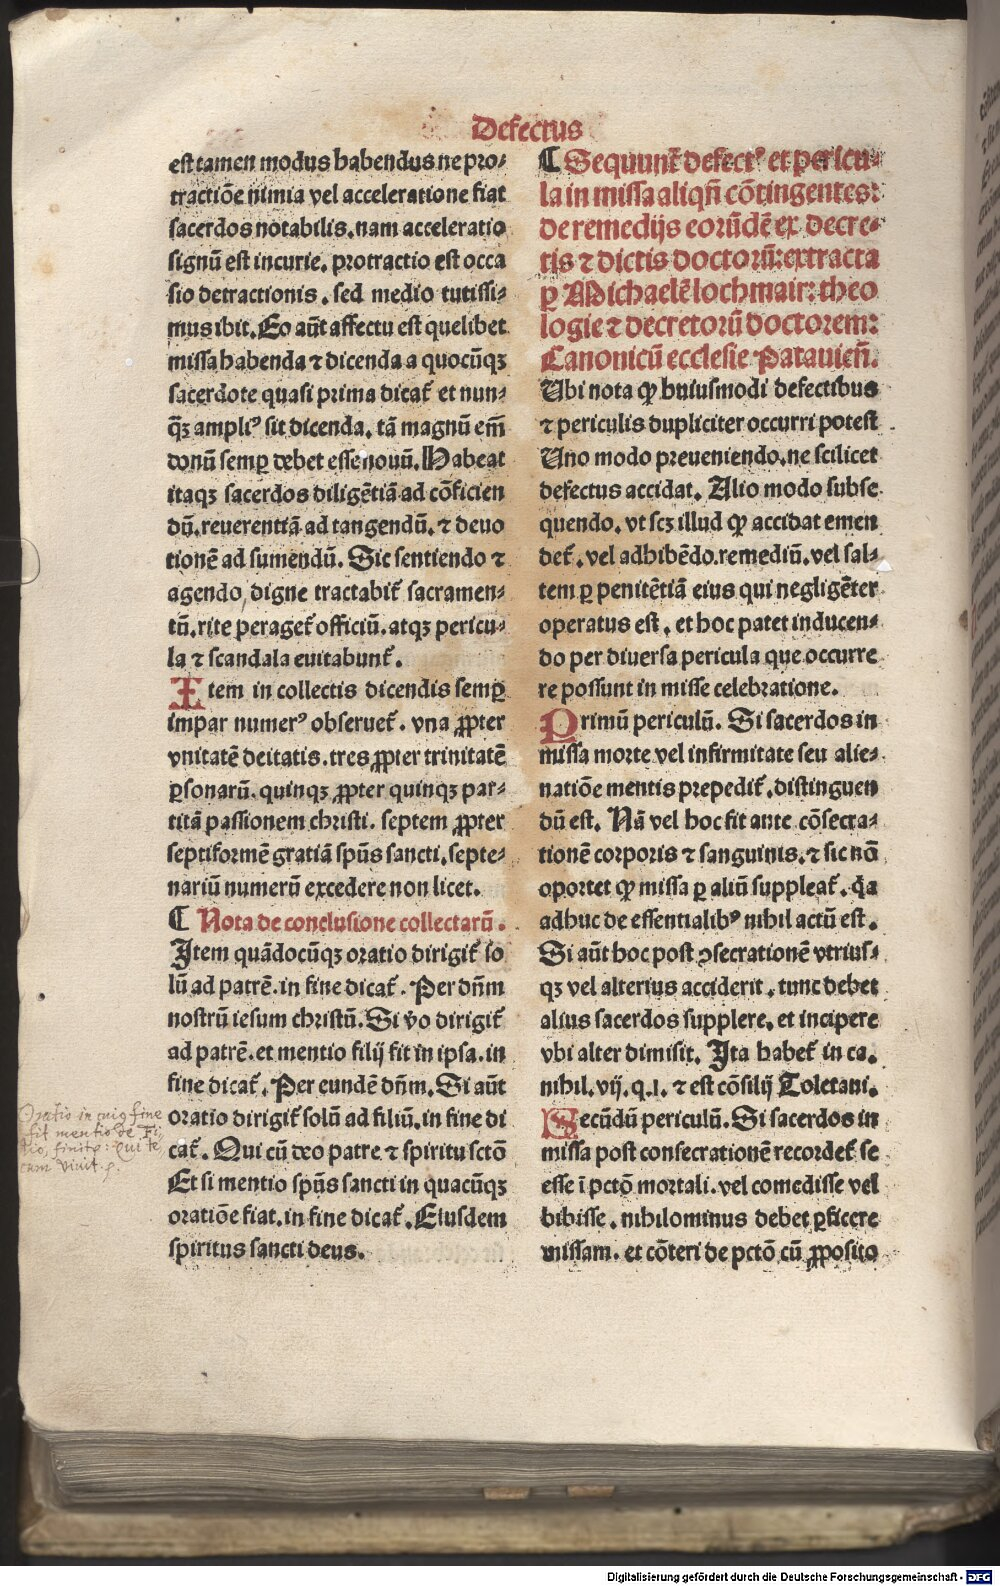 Defectus
est tamen modus habendus ne pro⸗
tractiõe nimia vel acceleratione fiat
sacerdos notabilis. nam acceleratio
signũ est incurie. protractio est occa
sio detractionis. sed medio tutissi⸗
mus ibit. Eo aũt affectu est quelibet
missa habenda ⁊ dicenda a quocũqꝫ
sacerdote quasi prima dicat᷑ et nun⸗
q̃ꝫ ampliꝰ sit dicenda. tã magnũ em̃
donũ semꝑ debet esse nouũ. Habeat
itaqꝫ sacerdos diligẽtiã ad cõficien
dũ. reuerentiã ad tangendũ. ⁊ deuo
tionẽ ad sumendũ. Sic sentiendo ⁊
agendo, digne tractabit᷑ sacramen⸗
tũ. rite peraget᷑ officiũ. atqꝫ pericu⸗
la ⁊ scandala euitabunt᷑.
Item in collectis dicendis semꝑ
impar numerꝰ obseruet᷑. vna ꝓpter
vnitatẽ deitatis. tres ꝓpter trinitatẽ
ꝑsonarũ. quinqꝫ ꝓpter quinqꝫ par⸗
titã passionem christi. septem ꝓpter
septiformẽ gratiã spũs sancti. septe⸗
nariũ numerũ excedere non licet.
¶ Nota de conclusione collectarũ.
Item quãdocũqꝫ oratio dirigit᷑ so
lũ ad patrẽ. in fine dicat᷑. Per dñm
nostrũ iesum christũ. Si v̊o dirigit᷑
ad patrẽ. et mentio filij fit in ipsa. in
fine dicat᷑. Per eundẽ dñm. Si aũt
oratio dirigit᷑ solũ ad filiũ. in fine di
cat᷑. Qui cũ deo patre ⁊ spiritu sctõ
Et si mentio spũs sancti in quacũqꝫ
oratiõe fiat. in fine dicat᷑. Eiusdem
spiritus sancti deus.
Oratio in cuiꝯ fine
fit mentio de Fi⸗
lio, finitꝛ: Qui te⸗
cum viuit.
¶ Sequunt᷑ defectꝰ et pericu⸗
la in missa aliqñ cõtingentes:
de remedijs eorũdẽ ex decre⸗
tis ⁊ dictis doctorũ: extracta
ꝑ Michaelẽ lochmair: theo
logie ⁊ decretorũ doctorem:
Canonicũ ecclesie Patauieñ.
Ubi nota ꝙ huiusmodi defectibus
⁊ periculis dupliciter occurri potest
Uno modo preueniendo. ne scilicet
defectus accidat. Alio modo subse
quendo. vt scꝫ illud ꝙ accidat emen
det᷑. vel adhibẽdo. remediũ. vel sal⸗
tem ꝑ penitẽtiã eius qui negligẽter
operatus est. et hoc patet inducen⸗
do per diuersa pericula que occurre
re possunt in misse celebratione.
Primũ periculũ. Si sacerdos in
missa morte vel infirmitate seu alie⸗
natiõe mentis prepedit᷑. distinguen
dũ est. Nã vel hoc fit ante cõsecra⸗
tionẽ corporis ⁊ sanguinis. ⁊ sic nõ
oportet ꝙ missa ꝑ aliũ suppleat᷑. q̃a
adhuc de essentialibꝰ nihil actũ est.
Si aũt hoc post ꝯsecrationẽ vtrius⸗
qꝫ vel alterius acciderit. tunc debet
alius sacerdos supplere. et incipere
vbi alter dimisit. Ita habet᷑ in ca.
nihil. vij. q. i. ⁊ est cõsilij Toletani.
Secũdũ periculũ. Si sacerdos in
missa post consecrationẽ recordet᷑ se
esse ĩ pctõ mortali. vel comedisse vel
bibisse. nihilominus debet ꝑficere
missam. et cõteri de pctõ cũ ꝓposito
Digitalisierung gefördert durch die Deutsche Forschungsgemeinschaft - DFG